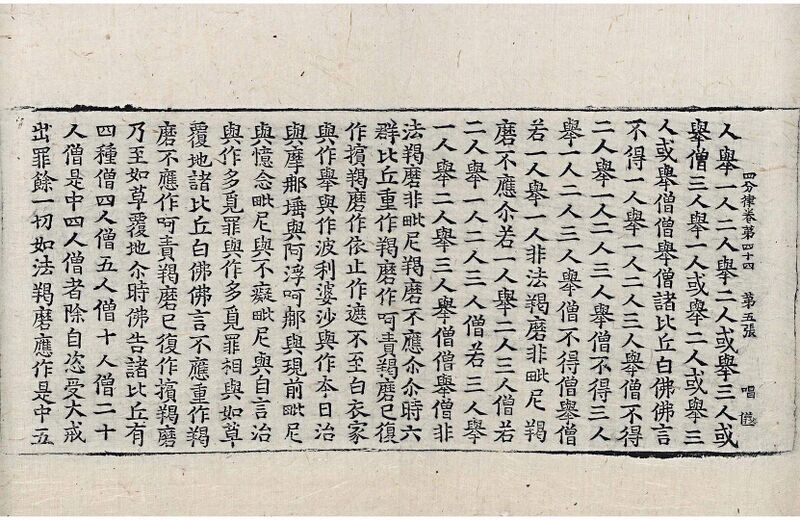 四分律卷第四十四 第五張 唱
人舉一人二人舉二人或舉三人或
舉僧三人舉一人或舉二人或舉三
人或舉僧僧舉僧諸比丘白佛佛言
不得一人舉一人二人三人舉僧不得
二人舉一人二人三人舉僧不得三人
舉一人二人三人舉僧不得僧舉僧
若一人舉一人非法羯磨非毗尼羯
磨不應尒若一人舉二人三人僧若
二人舉一人二人三人僧若三人舉
一人舉二人舉三人舉僧僧舉僧非
法羯磨非毗尼羯磨不應尒尒時六
群比丘重作羯磨作呵責羯磨已復
作擯羯磨作依止作遮不至白衣家
與作舉與作波利婆沙與作夲日治
與摩那埵與阿浮呵那與現前毗尼
與憶念毗尼與不癡毗尼與自言治
與作多覓罪與作多覓罪相與如草
覆地諸比丘白佛佛言不應重作羯
磨不應作呵責羯磨已復作擯羯磨
乃至如草覆地尒時佛告諸比丘有
四種僧四人僧五人僧十人僧二十
人僧是中四人僧者除自恣受大戒
出罪餘一切如法羯磨應作是中五